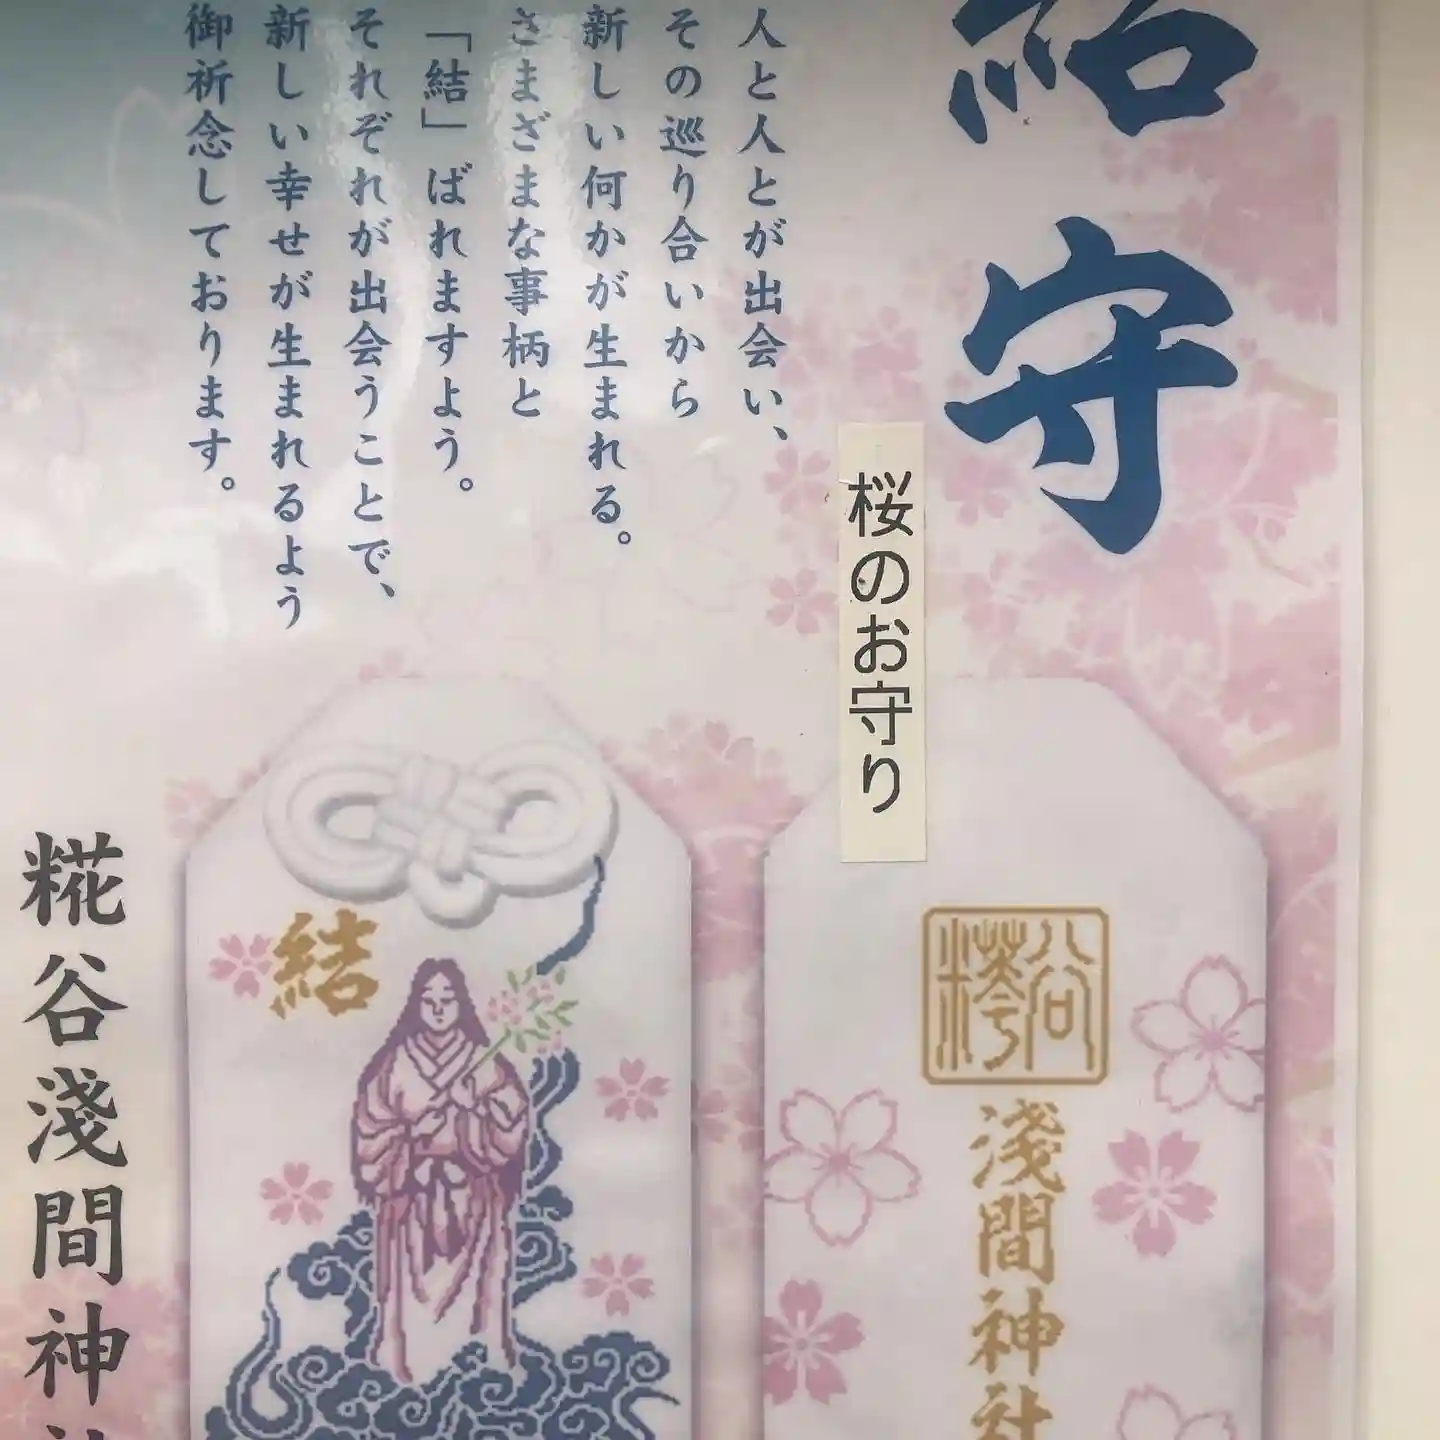 結守
人と人とが出会い、
その巡り合いから
新しい何かが生まれる。
さまざまな事柄と
「結」ばれますよう。
それぞれが出会うことで、
新しい幸せが生まれるよう
御祈念しております。
桜のお守り
糀谷
淺間神社
結
糀谷淺間神社